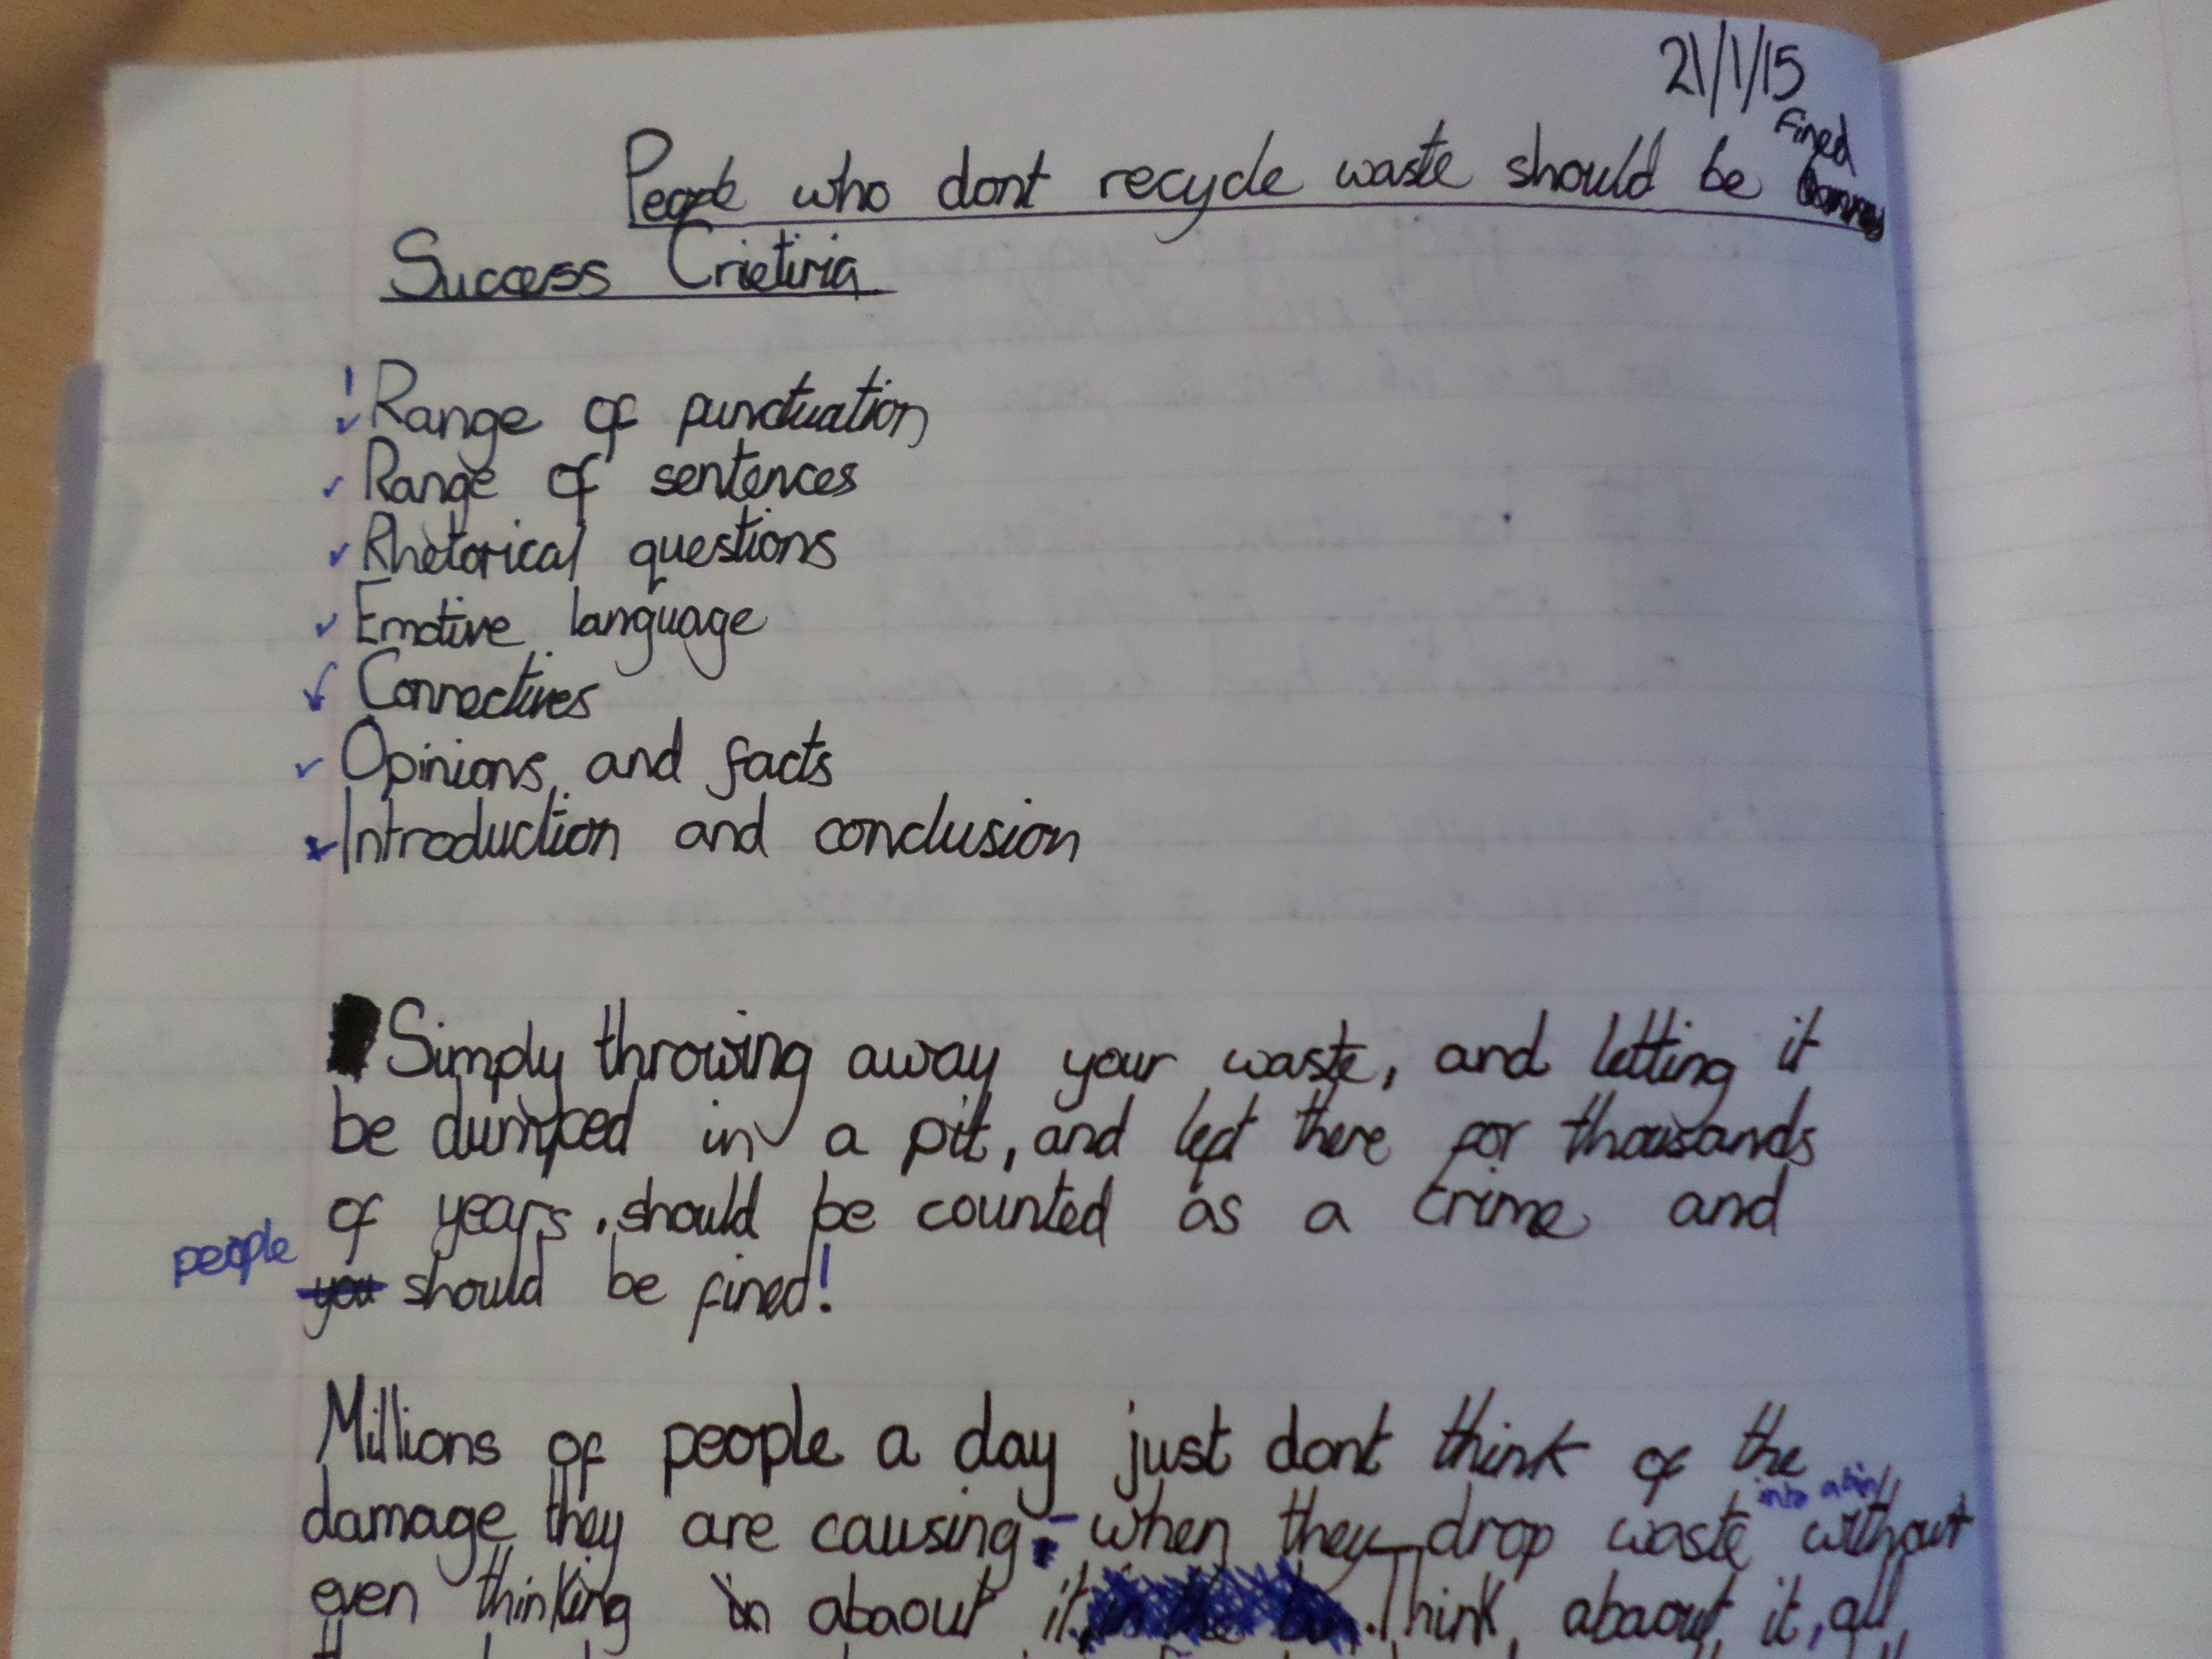 21/1/15
People who dont recycle waste should be Fined
Success Crietiria
! Range of punctuation
✓ Range of sentences
✓ Rhetorical questions
✓ Emotive language
✓ Connectives
✓ Opinions and facts
Introduction and conclusion
Simply throwing away your waste, and letting it
be dumped in a pit, and left there for thousands
of years, should be counted as a crime and
people you should be fined!
Millions of people a day just dont think of the
damage they are causing - when they drop waste into a bin without
even thinking in abaout it. Think, abaout it, all